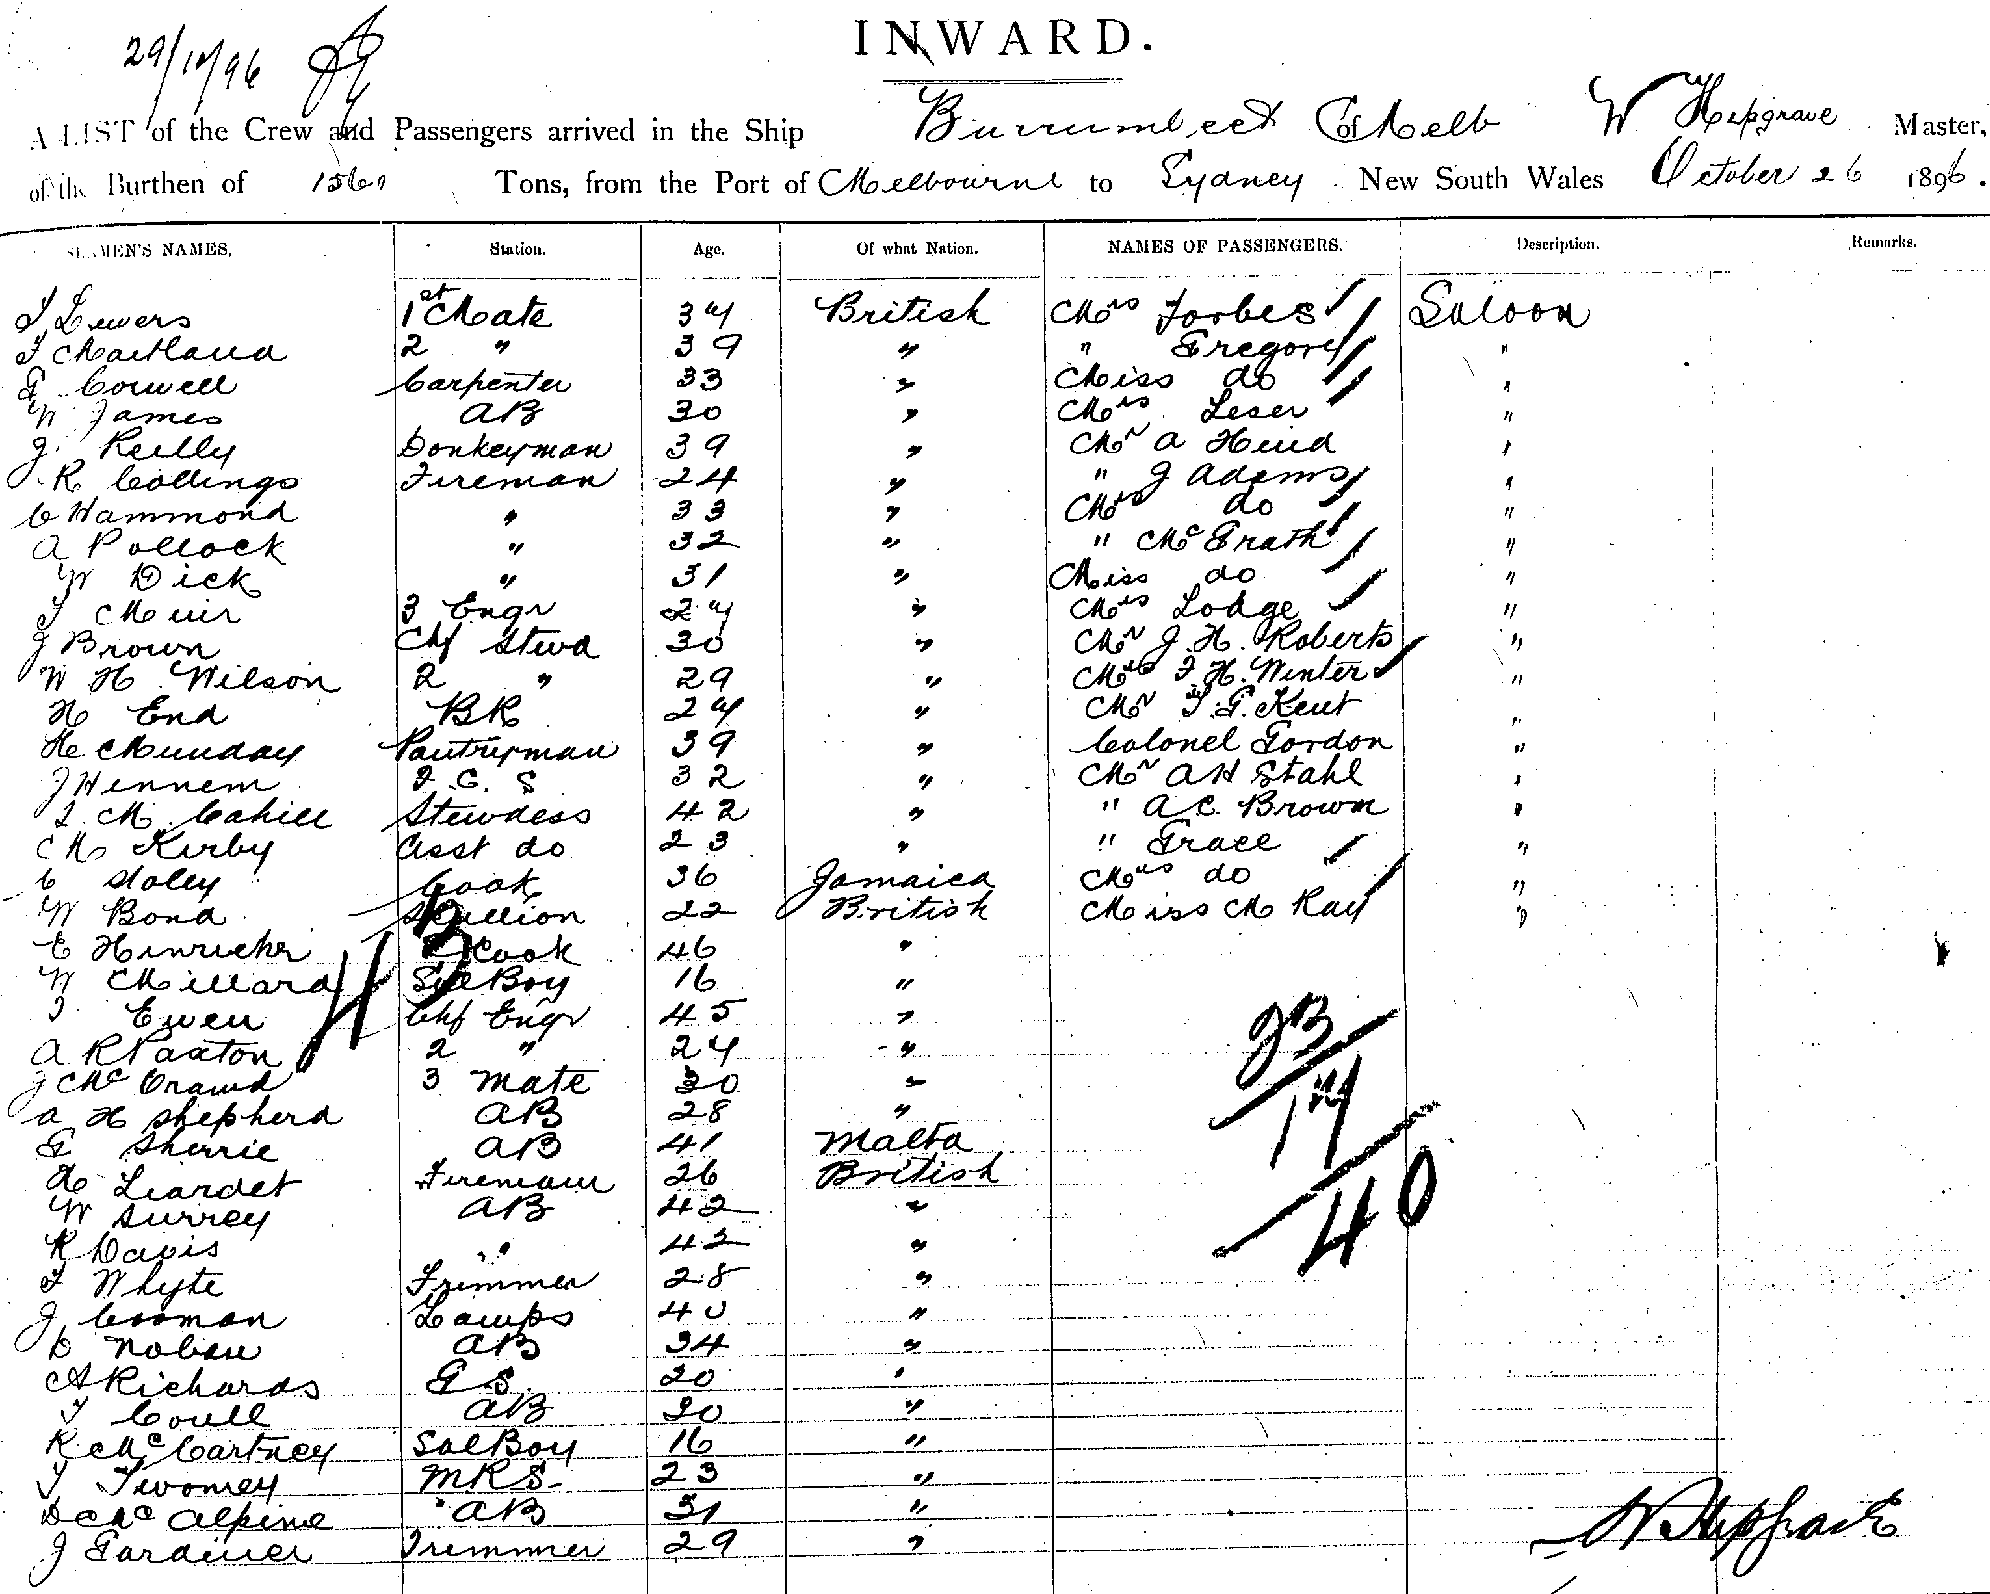 29/10/96
INWARD.
A LIST of the Crew and Passengers arrived in the Ship Burrumbeet of Melb W Hepgrave Master,
of the Burthen of Tons, from the Port of Melbourne to Sydney New South Wales October 26 1896.
SEAMEN'S NAMES. Station. Age. Of what Nation. NAMES OF PASSENGERS. Description. Remarks.
J Lewers 1st Mate 34 British Mrs Forbes Saloon
J Maitland 2 " 39 " " Gregory "
G Corwell Carpenter 33 " Miss do "
W James AB 30 " Mrs Leser "
J. Reilly Donkeyman 39 " Mr A Hind "
J. R Collings Fireman 24 " " J Adams "
C Hammond " 33 " Mrs do "
A Pollock " 32 " " McGrath "
W Dick " 31 " Miss do "
J Muir 3 Engr 24 " Mrs Lodge "
J Brown Chf Stwd 30 " Mr J. H. Roberts "
W H Wilson 2 " 29 " Mrs F. H. Winter "
H End BR 24 " Mr T. G. Kent "
H Munday Pantryman 39 " Colonel Gordon "
J Hennem F. C. S 32 " Mr A H Stahl "
I. M. Cahill Stewdess 42 " " A C. Brown "
M Kirby Asst do 23 " " Grace "
C Holey Cook 36 Jamaica Mrs do "
W Bond Scullion 22 British Miss M Ray "
E Hinrichs 2 Cook 46 "
W Millard Sal Boy 16 "
J Ewen Chf Engr 45 "
A R Paxton 2 " 24 " 23
J McCrawd 3 Mate 30 " 17
A H Shepherd AB 28 "
G Sherrie AB 41 Malta
H Liardet Fireman 26 British 40
W Surrey AB 42 "
R Davis " 42 "
J Whyte Trimmer 28 "
J Cooman Lamps 40 "
D Nolan AB 34 "
A Richards G S. 20 "
J Coull AB 30 "
R McCartney Sal Boy 16 "
J Twomey MRS. 23 "
D McAlpine AB 31 "
J Gardiner Trimmer 29 "
W Hepgrave